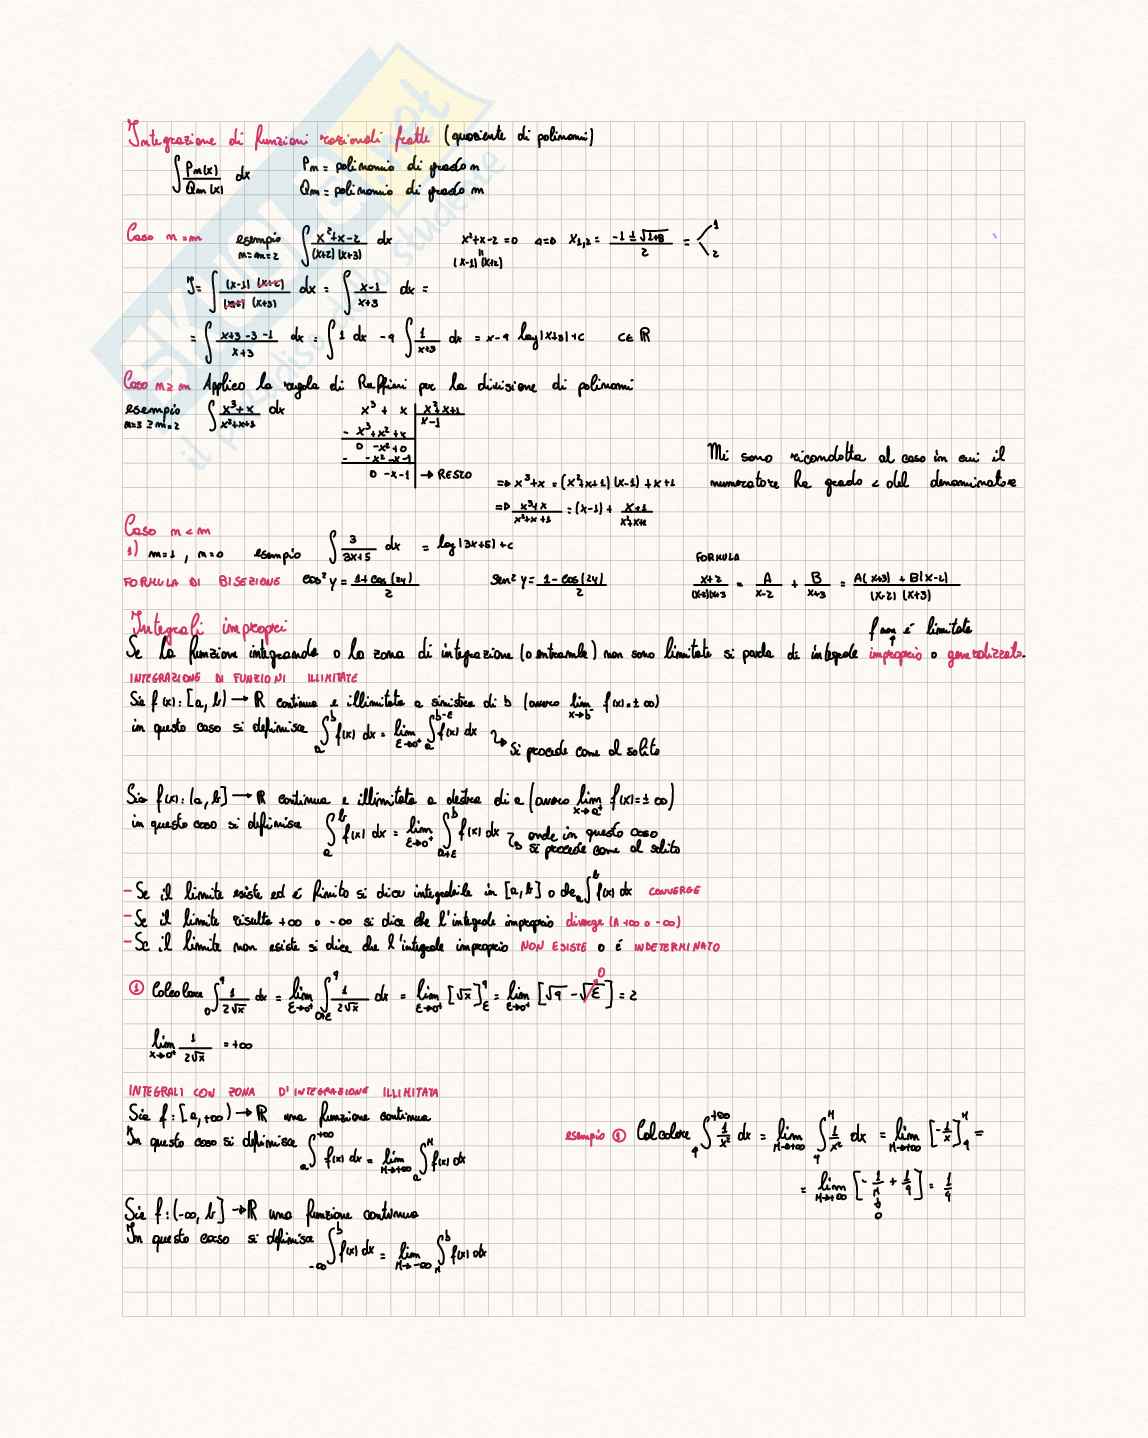 Integrazione di funzioni razionali fratte (quoziente di polinomi)
∫ Pm(x)/Qm(x) dx Pm = polinomio di grado n
Qm = polinomio di grado m
Caso n=m esempio ∫ x²+x-2/(x+2)(x+3) dx x²+x-2=0 x1,2 = -1±√1+8/2 = 1
n=m=2 (x-1)(x+2) 2
I= ∫ (x-1)(x+2)/(x+2)(x+3) dx = ∫ x-1/x+3 dx =
= ∫ x+3-3-1/x+3 dx = ∫ 1 dx -4 ∫ 1/x+3 dx = x-4 log|x+3|+c c∈ℝ
Caso n≥m Applico la regola di Ruffini per la divisione di polinomi
esempio ∫ x³+x/x²+x+1 dx x³ + x | x²+x+1
n=3 ≥ m=2 x-1
- x³+x²+x
0 -x²+0
- -x²-x-1
0 -x-1 → RESTO
Mi sono ricondotta al caso in cui il
numeratore ha grado < del denominatore
=> x³+x = (x²+x+1)(x-1)+x+1
=> x³+x/x²+x+1 = (x-1)+ x+1/x²+x+1
Caso n<m
1) m=1, n=0 esempio ∫ 3/3x+5 dx = log|3x+5|+c
FORMULA DI BISEZIONE cos² y = 1+cos(2y)/2 sen² y = 1-cos(2y)/2
FORMULA
x+2/(x-2)(x+3) = A/x-2 + B/x+3 = A(x+3)+B(x-2)/(x-2)(x+3)
Integrali impropri
f non è limitata
Se la funzione integranda o la zona di integrazione (o entrambe) non sono limitate si parla di integrale improprio o generalizzato.
INTEGRAZIONE DI FUNZIONI ILLIMITATE
Sia f(x): [a,b) → ℝ continua e illimitata a sinistra di b (ovvero lim x→b⁻ f(x)=±∞)
in questo caso si definisce ∫ₐᵇ f(x) dx = lim ε→0⁺ ∫ₐᵇ⁻ᵋ f(x) dx
→ Si procede come al solito
Sia f(x): (a,b] → ℝ continua e illimitata a destra di a (ovvero lim x→a⁺ f(x)=±∞)
in questo caso si definisce ∫ₐᵇ f(x) dx = lim ε→0⁺ ∫ₐ₊εᵇ f(x) dx → anche in questo caso
si procede come al solito
- Se il limite esiste ed è finito si dice integrabile in [a,b] o che ∫ₐᵇ f(x) dx CONVERGE
- Se il limite risulta +∞ o -∞ si dice che l'integrale improprio diverge (a +∞ o -∞)
- Se il limite non esiste si dice che l'integrale improprio NON ESISTE o è INDETERMINATO
① Calcolare ∫₀⁴ 1/2√x dx = lim ε→0⁺ ∫₀₊ε⁴ 1/2√x dx = lim ε→0⁺ [√x]ε⁴ = lim ε→0⁺ [√4 - √ε] = 2
0
lim x→0⁺ 1/2√x = +∞
INTEGRALI CON ZONA D'INTEGRAZIONE ILLIMITATA
Sia f: [a,+∞) → ℝ una funzione continua
In questo caso si definisce ∫ₐ⁺∞ f(x) dx = lim M→+∞ ∫ₐᴹ f(x) dx
esempio ① Calcolare ∫₄⁺∞ 1/x² dx = lim M→+∞ ∫₄ᴹ 1/x² dx = lim M→+∞ [-1/x]₄ᴹ =
= lim M→+∞ [-1/M + 1/4] = 1/4
0
Sia f: (-∞,b] → ℝ una funzione continua
In questo caso si definisce ∫₋∞ᵇ f(x) dx = lim M→-∞ ∫ᴹᵇ f(x) dx